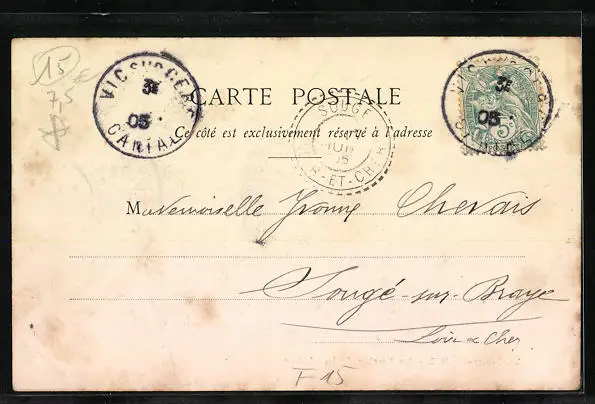 15
7,5
VIC SUR CERE
05
CANTAL
CARTE POSTALE
Ce côté est exclusivement réservé à l'adresse
SOUGÉ
05
R-ET-CHER
05
5
Mademoiselle Yvonne Chevais
Sougé-sur-Braye
Loir & Cher
F 15